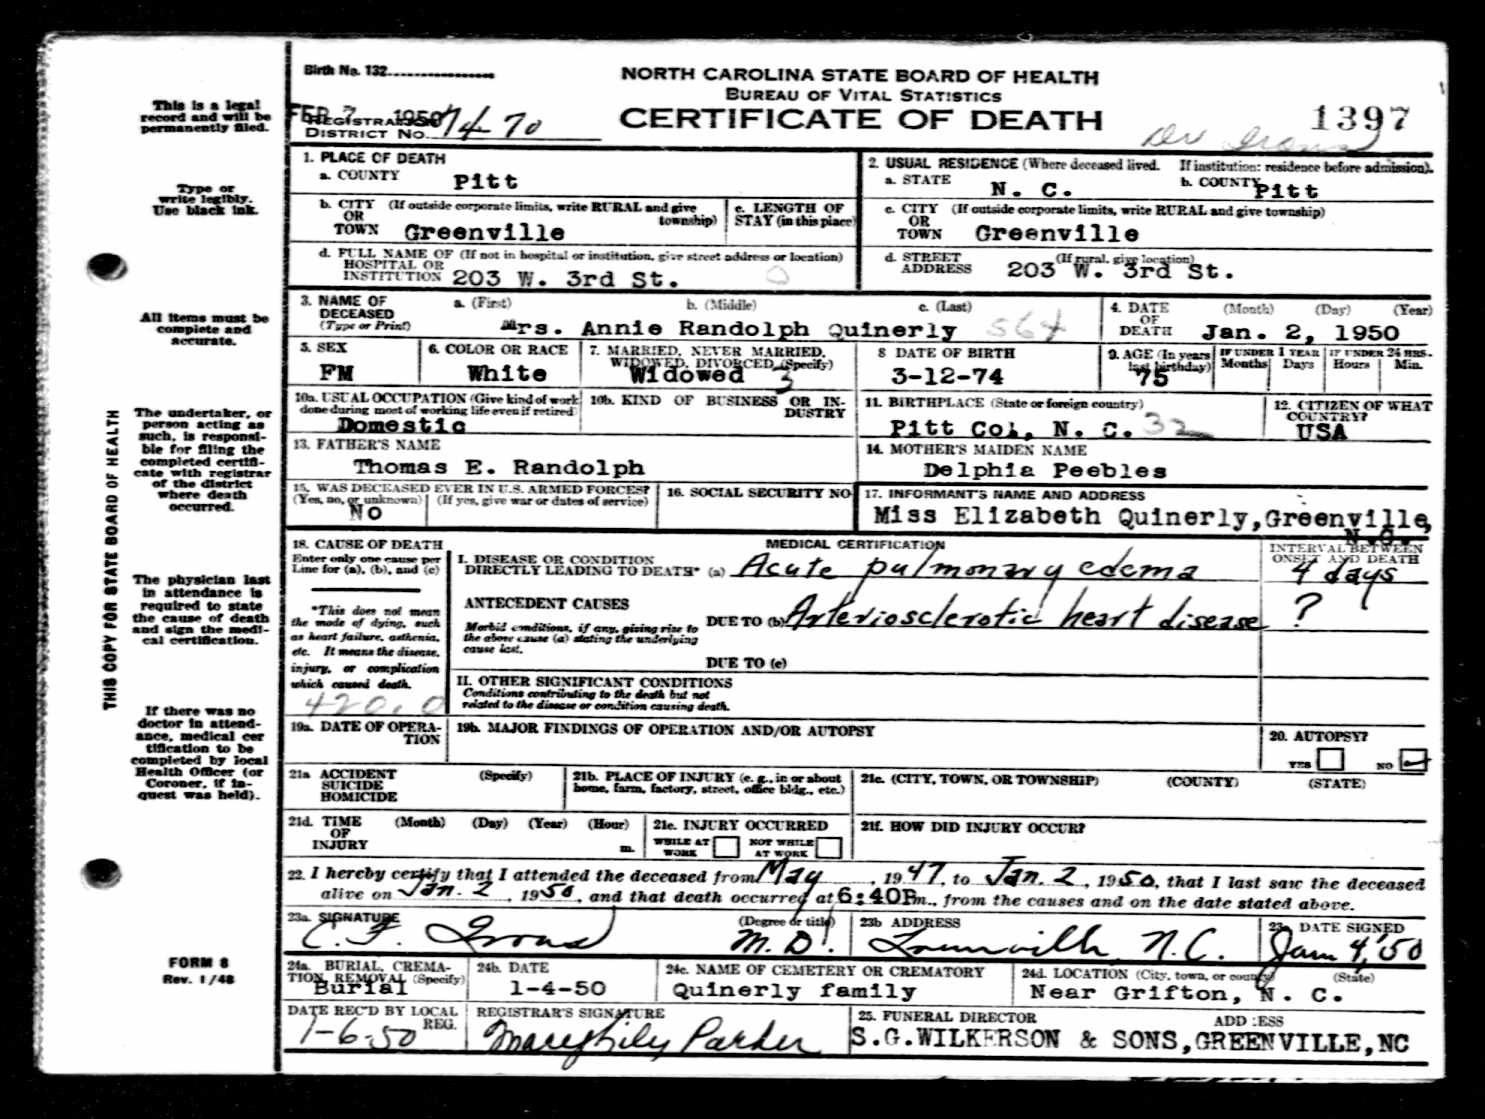 Birth No. 132
NORTH CAROLINA STATE BOARD OF HEALTH
BUREAU OF VITAL STATISTICS
CERTIFICATE OF DEATH
FEB 1950
REGISTRATION
DISTRICT No. 7470
1397
1. PLACE OF DEATH
a. COUNTY Pitt
b. CITY (If outside corporate limits, write RURAL and give township)
OR
TOWN Greenville
c. LENGTH OF STAY (in this place)
d. FULL NAME OF (If not in hospital or institution, give street address or location)
HOSPITAL OR
INSTITUTION 203 W. 3rd St.
2. USUAL RESIDENCE (Where deceased lived. If institution: residence before admission).
a. STATE N. C. b. COUNTY Pitt
c. CITY (If outside corporate limits, write RURAL and give township)
OR
TOWN Greenville
d. STREET (If rural, give location)
ADDRESS 203 W. 3rd St.
3. NAME OF DECEASED (Type or Print)
a. (First) b. (Middle) c. (Last)
Mrs. Annie Randolph Quinerly 564
4. DATE OF DEATH (Month) (Day) (Year)
Jan. 2, 1950
5. SEX
FM
6. COLOR OR RACE
White
7. MARRIED, NEVER MARRIED, WIDOWED, DIVORCED (Specify)
Widowed 3
8 DATE OF BIRTH
3-12-74
9. AGE (In years last birthday)
75
IF UNDER 1 YEAR
Months Days
IF UNDER 24 HRS.
Hours Min.
10a. USUAL OCCUPATION (Give kind of work done during most of working life even if retired)
Domestic
10b. KIND OF BUSINESS OR INDUSTRY
11. BIRTHPLACE (State or foreign country)
Pitt Co., N. C. 32
12. CITIZEN OF WHAT COUNTRY?
USA
13. FATHER'S NAME
Thomas E. Randolph
14. MOTHER'S MAIDEN NAME
Delphia Peebles
15. WAS DECEASED EVER IN U.S. ARMED FORCES?
(Yes, no, or unknown) (If yes, give war or dates of service)
No
16. SOCIAL SECURITY NO
17. INFORMANT'S NAME AND ADDRESS
Miss Elizabeth Quinerly, Greenville, N.C.
18. CAUSE OF DEATH
Enter only one cause per
Line for (a), (b), and (c)
*This does not mean
the mode of dying, such
as heart failure, asthenia,
etc. It means the disease,
injury, or complication
which caused death.
420.0
MEDICAL CERTIFICATION
INTERVAL BETWEEN ONSET AND DEATH
I. DISEASE OR CONDITION
DIRECTLY LEADING TO DEATH* (a) Acute pulmonary edema 4 days
ANTECEDENT CAUSES
Morbid conditions, if any, giving rise to
the above cause (a) stating the underlying
cause last.
DUE TO (b) Arteriosclerotic heart disease ?
DUE TO (c)
II. OTHER SIGNIFICANT CONDITIONS
Conditions contributing to the death but not
related to the disease or condition causing death.
19a. DATE OF OPERATION
19b. MAJOR FINDINGS OF OPERATION AND/OR AUTOPSY
20. AUTOPSY?
YES NO
21a ACCIDENT (Specify)
SUICIDE
HOMICIDE
21b. PLACE OF INJURY (e. g., in or about
home, farm, factory, street, office bldg., etc.)
21c. (CITY, TOWN, OR TOWNSHIP) (COUNTY) (STATE)
21d. TIME (Month) (Day) (Year) (Hour)
OF
INJURY m.
21e. INJURY OCCURRED
WHILE AT WORK NOT WHILE AT WORK
21f. HOW DID INJURY OCCUR?
22. I hereby certify that I attended the deceased from May, 1947, to Jan. 2, 1950, that I last saw the deceased
alive on Jan. 2, 1950, and that death occurred at 6:40P m., from the causes and on the date stated above.
23a. SIGNATURE (Degree or title)
C. F. M.D.
23b ADDRESS
Greenville, N.C.
23c DATE SIGNED
Jan 4, '50
24a. BURIAL, CREMATION, REMOVAL (Specify)
Burial
24b. DATE
1-4-50
24c. NAME OF CEMETERY OR CREMATORY
Quinerly family
24d. LOCATION (City, town, or county) (State)
Near Grifton, N. C.
DATE REC'D BY LOCAL REG.
1-6-50
REGISTRAR'S SIGNATURE
Parker
25. FUNERAL DIRECTOR ADDRESS
S.G.WILKERSON & SONS, GREENVILLE, NC
This is a legal
record and will be
permanently filed.
Type or
write legibly.
Use black ink.
All items must be
complete and
accurate.
The undertaker, or
person acting as
such, is responsi-
ble for filing the
completed certifi-
cate with registrar
of the district
where death
occurred.
The physician last
in attendance is
required to state
the cause of death
and sign the medi-
cal certification.
If there was no
doctor in attend-
ance, medical cer
tification to be
completed by local
Health Officer (or
Coroner, if in-
quest was held).
THIS COPY FOR STATE BOARD OF HEALTH
FORM 8
Rev. 1/48